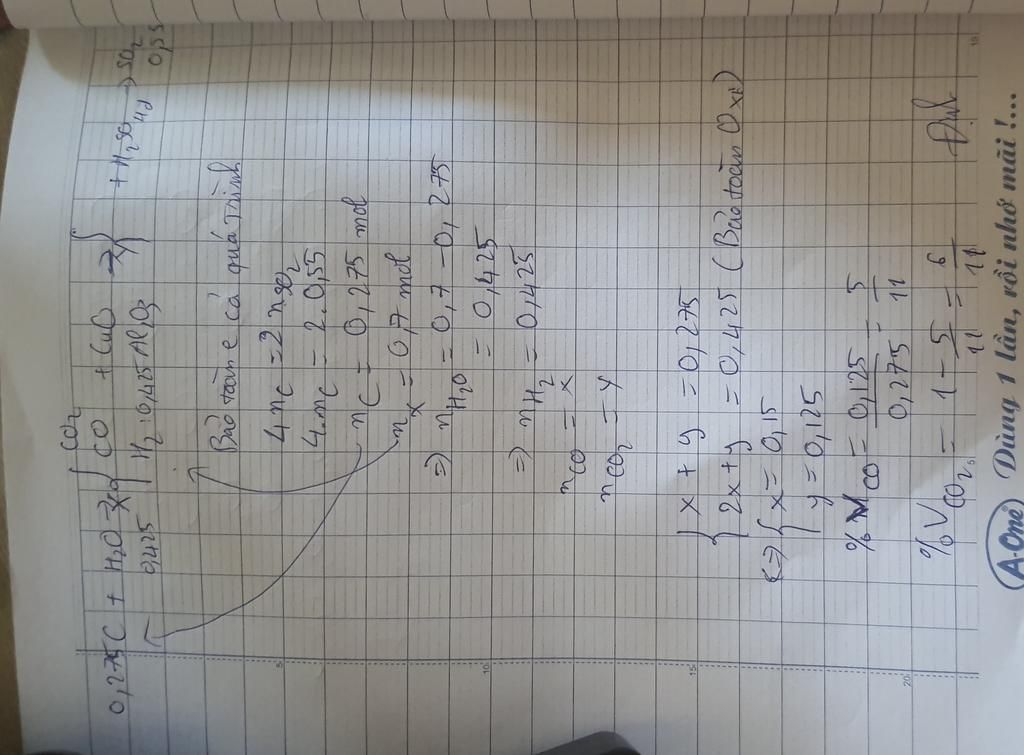 CO2
0,275C + H2O → { CO + CuO → } + H2SO4đ → SO2
0,425 H2 : 0,425 Al2O3 0,55
Bảo toàn e cả quá trình
4 nC = 2 nSO2
4. nC = 2. 0,55
nC = 0,275 mol
nX = 0,7 mol
=> nH2O = 0,7 - 0,275
= 0,425
=> nH2 = 0,425
nCO = x
nCO2 = y
{ x + y = 0,275
2x + y = 0,425 (Bảo toàn Oxi)
<=> { x = 0,15
y = 0,125
% CO = 0,125 / 0,275 = 5/11
% VCO2 = 1 - 5/11 = 6/11
5
10
15
20
A-One Dùng 1 lần, rồi nhớ mãi !...